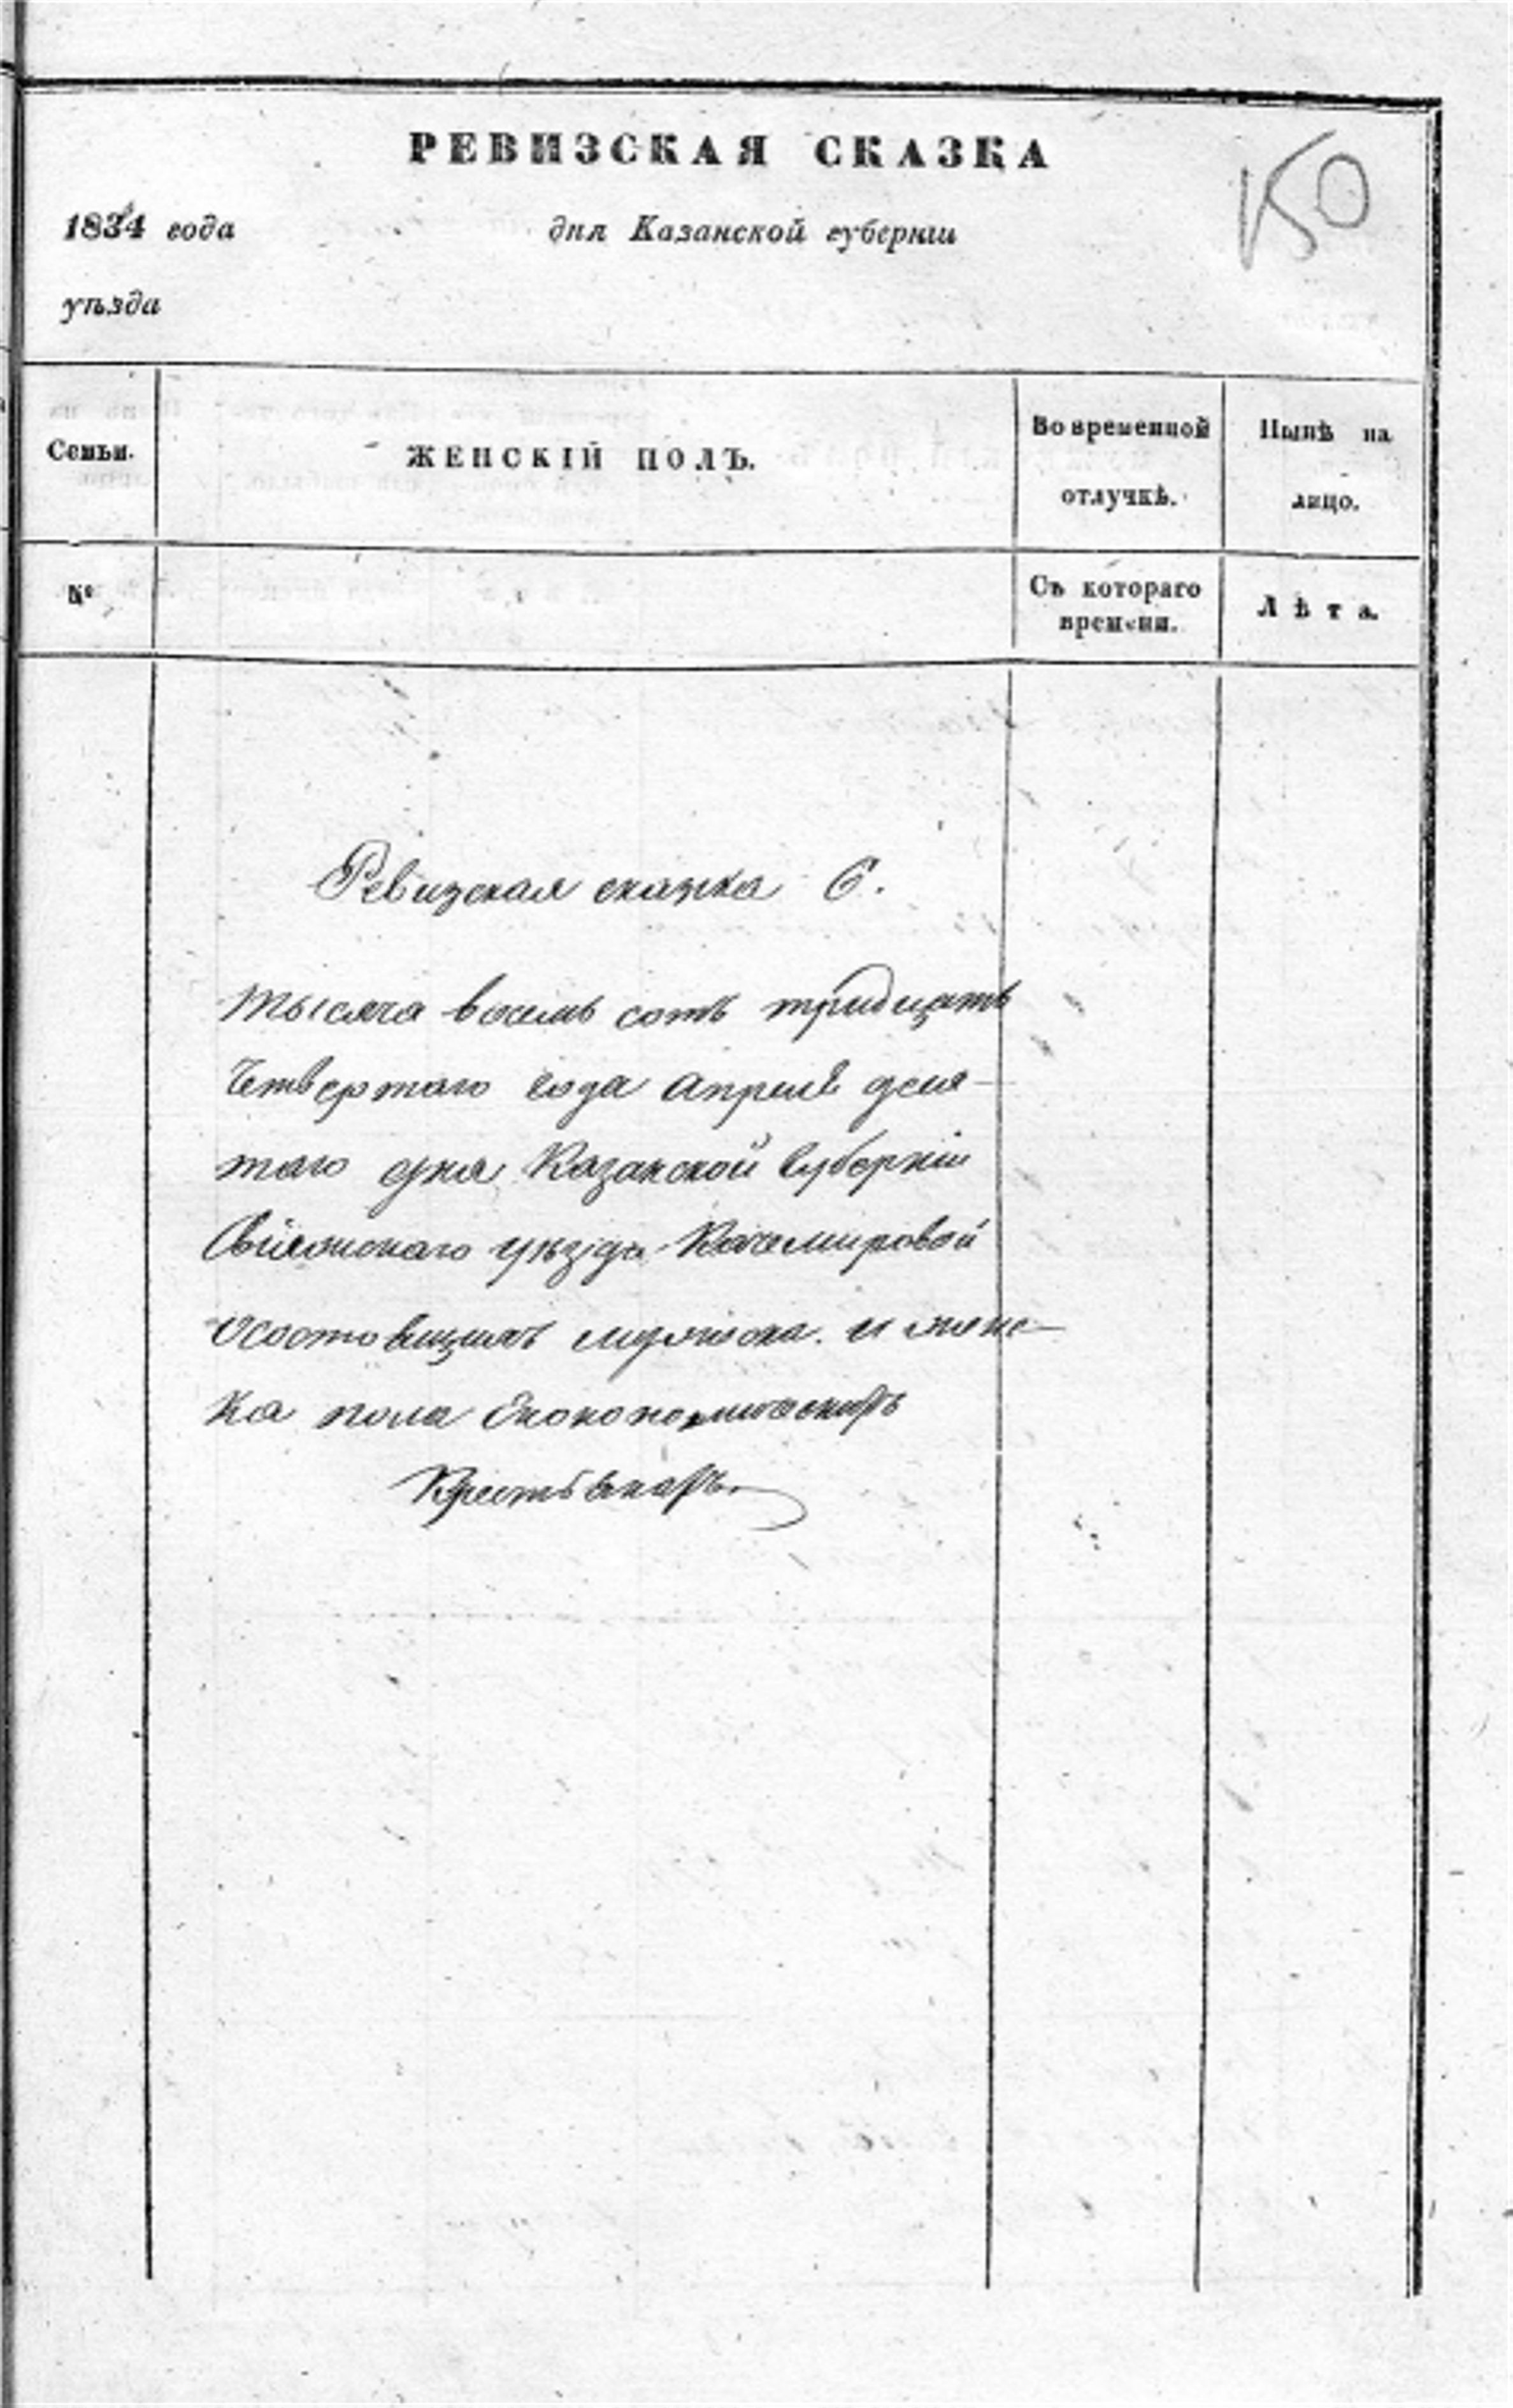 РЕВИЗСКАЯ СКАЗКА
150
1834 года
дня Казанской губерніи
уѣзда
Семьи.
ЖЕНСКІЙ ПОЛЪ.
Во временной отлучкѣ.
Нынѣ на лицо.
№
Съ котораго времени.
Лѣта.
Ревизская сказка 6.
тысяча восемь сотъ тридцать
Четвертаго года Апреля деся-
таго дня Казанской губерніи
Свіяжскаго уѣзда
Осостоящихъ мужеска и женс-
ка пола Экономическихъ
Крестьянахъ.